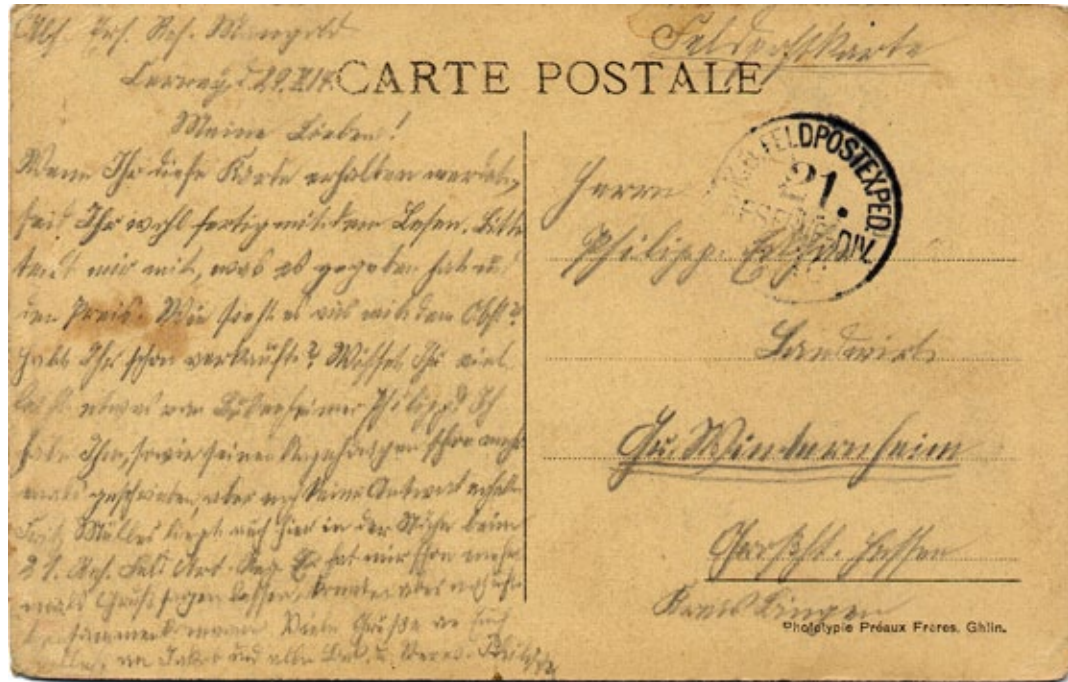 Abs. Ers. Res. Mangold
Cernay, d. 29. X 14.
Feldpostkarte
CARTE POSTALE
Meine Lieben!
Wenn Ihr diese Karte erhalten werdet,
seid Ihr wohl fertig mit dem Lesen. Bitte
teilt mir mit, was es gegeben hat u.
den Preis. Wie sieht es aus mit dem Obst?
Habt Ihr schon verkauft? Wisset Ihr viel
leicht etwas von Philipp? Ich
habe Ihm, sowie seinen Angehörigen schon mehr
mals geschrieben, aber noch keine Antwort erhalten
Fritz Müller liegt auch hier in der Nähe beim
21. Res. Feld Art. Reg. Er hat mir schon mehr
mals Grüße sagen lassen, konnten aber noch nicht
zusammenkommen. Viele Grüße an Euch
an Jakob und alle
K.B. FELDPOSTEXPED.
21.
RESERVE DIV.
Herrn
Philipp
Landwirt
Gr. Winternheim
Großht. Hessen
Kreis Bingen
Phototypie Préaux Frères, Ghlin.